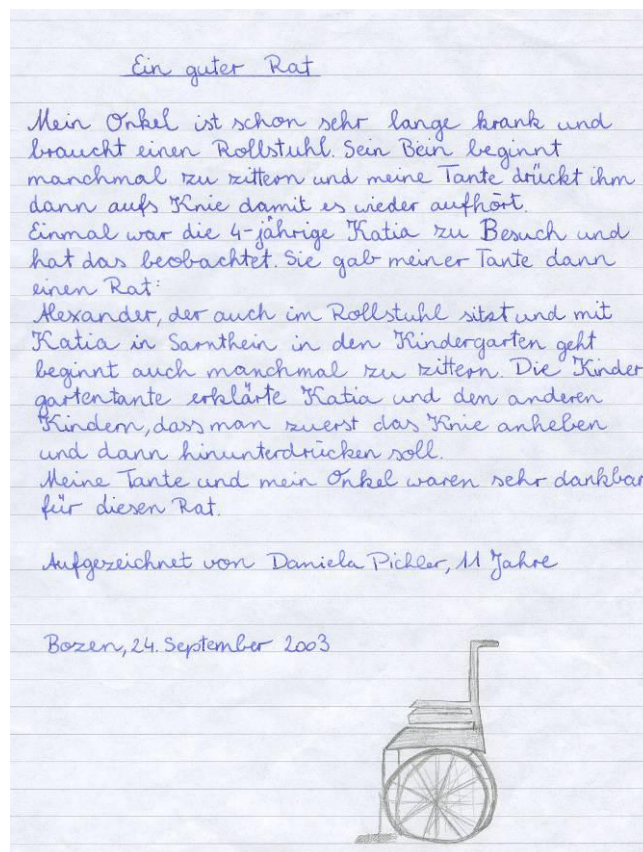 Ein guter Rat
Mein Onkel ist schon sehr lange krank und
braucht einen Rollstuhl. Sein Bein beginnt
manchmal zu zittern und meine Tante drückt ihm
dann aufs Knie damit es wieder aufhört.
Einmal war die 4-jährige Katia zu Besuch und
hat das beobachtet. Sie gab meiner Tante dann
einen Rat:
Alexander, der auch im Rollstuhl sitzt und mit
Katia in Sarnthein in den Kindergarten geht
beginnt auch manchmal zu zittern. Die Kinder
gartentante erklärte Katia und den anderen
Kindern, dass man zuerst das Knie anheben
und dann hinunterdrücken soll.
Meine Tante und mein Onkel waren sehr dankbar
für diesen Rat.
Aufgezeichnet von Daniela Pichler, 11 Jahre
Bozen, 24. September 2003